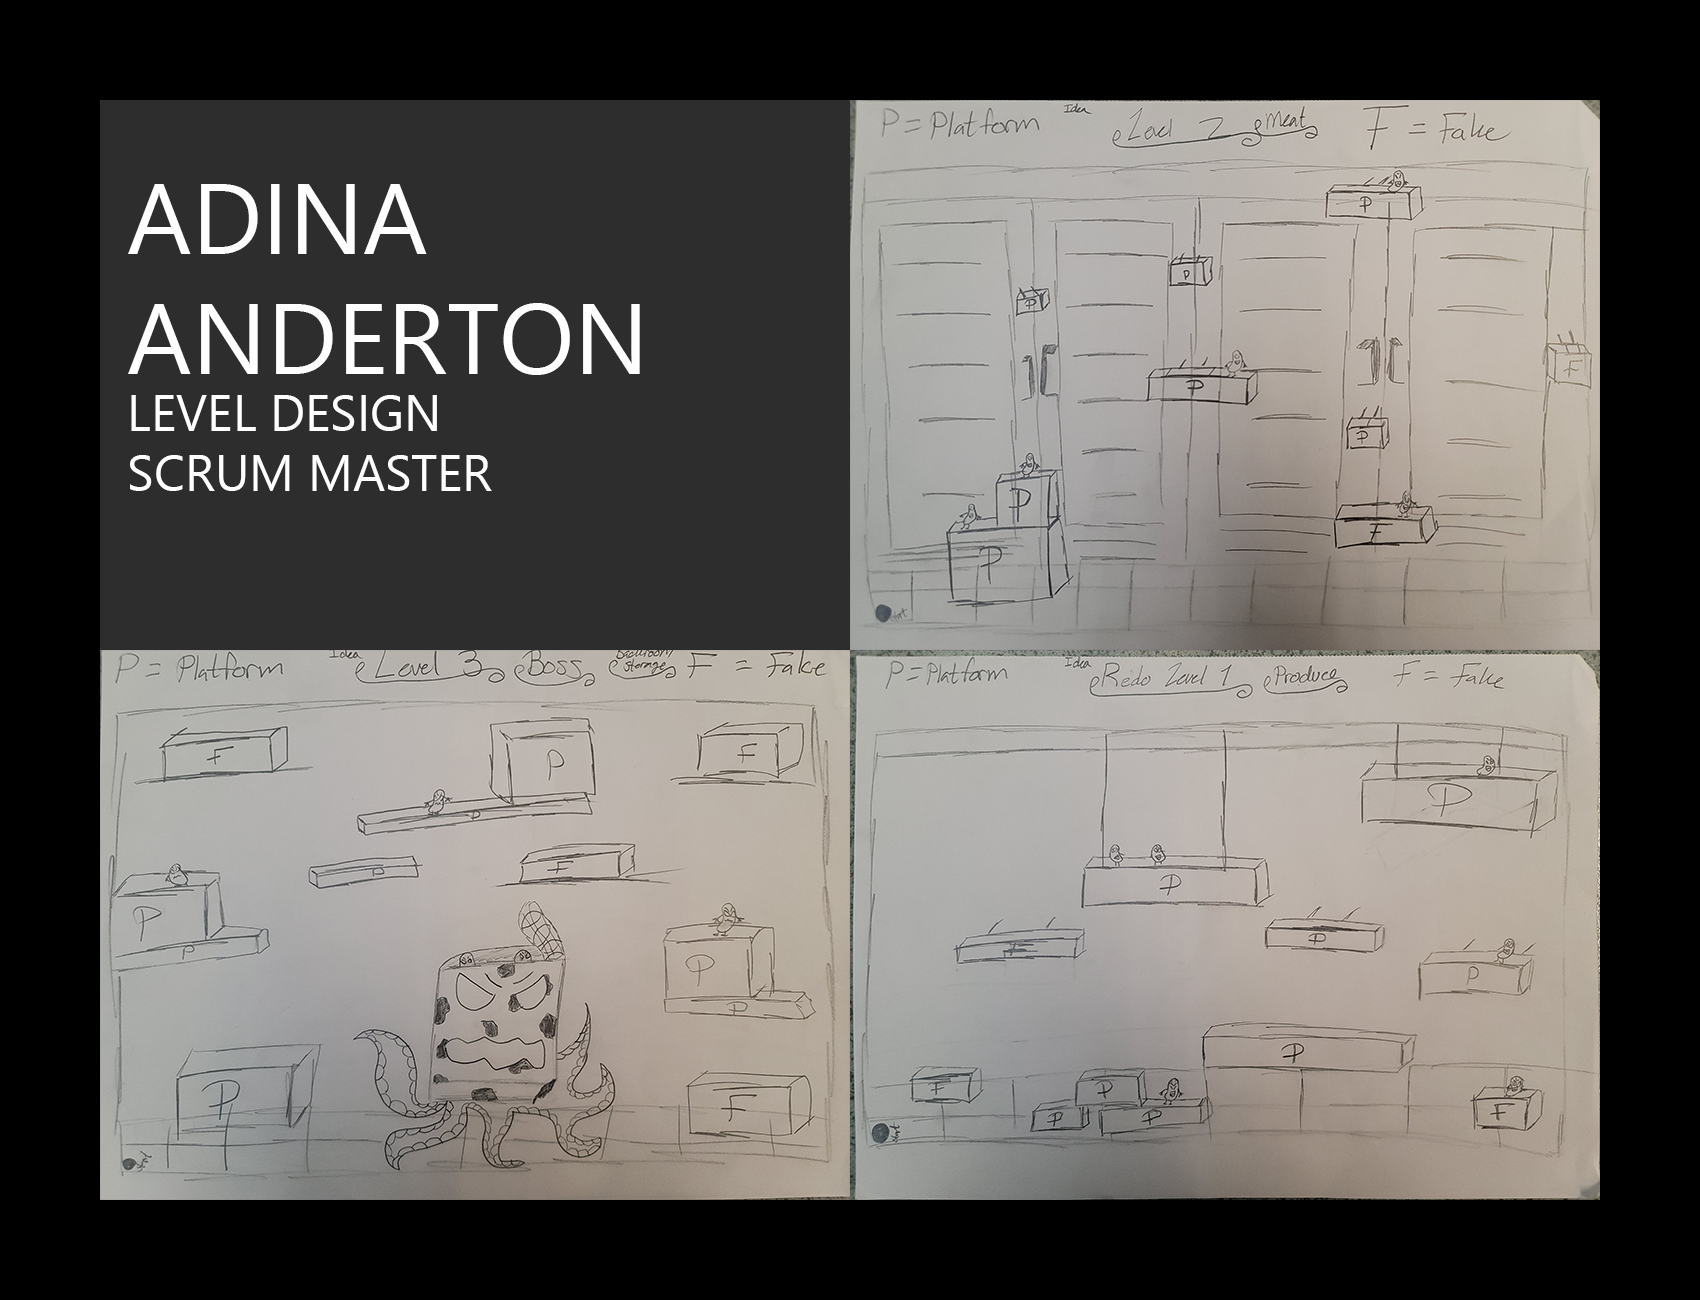 ADINA
ANDERTON
LEVEL DESIGN
SCRUM MASTER
P = Platform Idea Level 2 Meat F = Fake
P
P
P
P
F
P
P
F
P
start
P = Platform Idea Level 3 Boss Backroom Storage F = Fake
F P F
P
F
P
P
P
P
P F
start
P = Platform Idea Redo Level 1 Produce F = Fake
P
P
P
P
P
F P
P P F
start